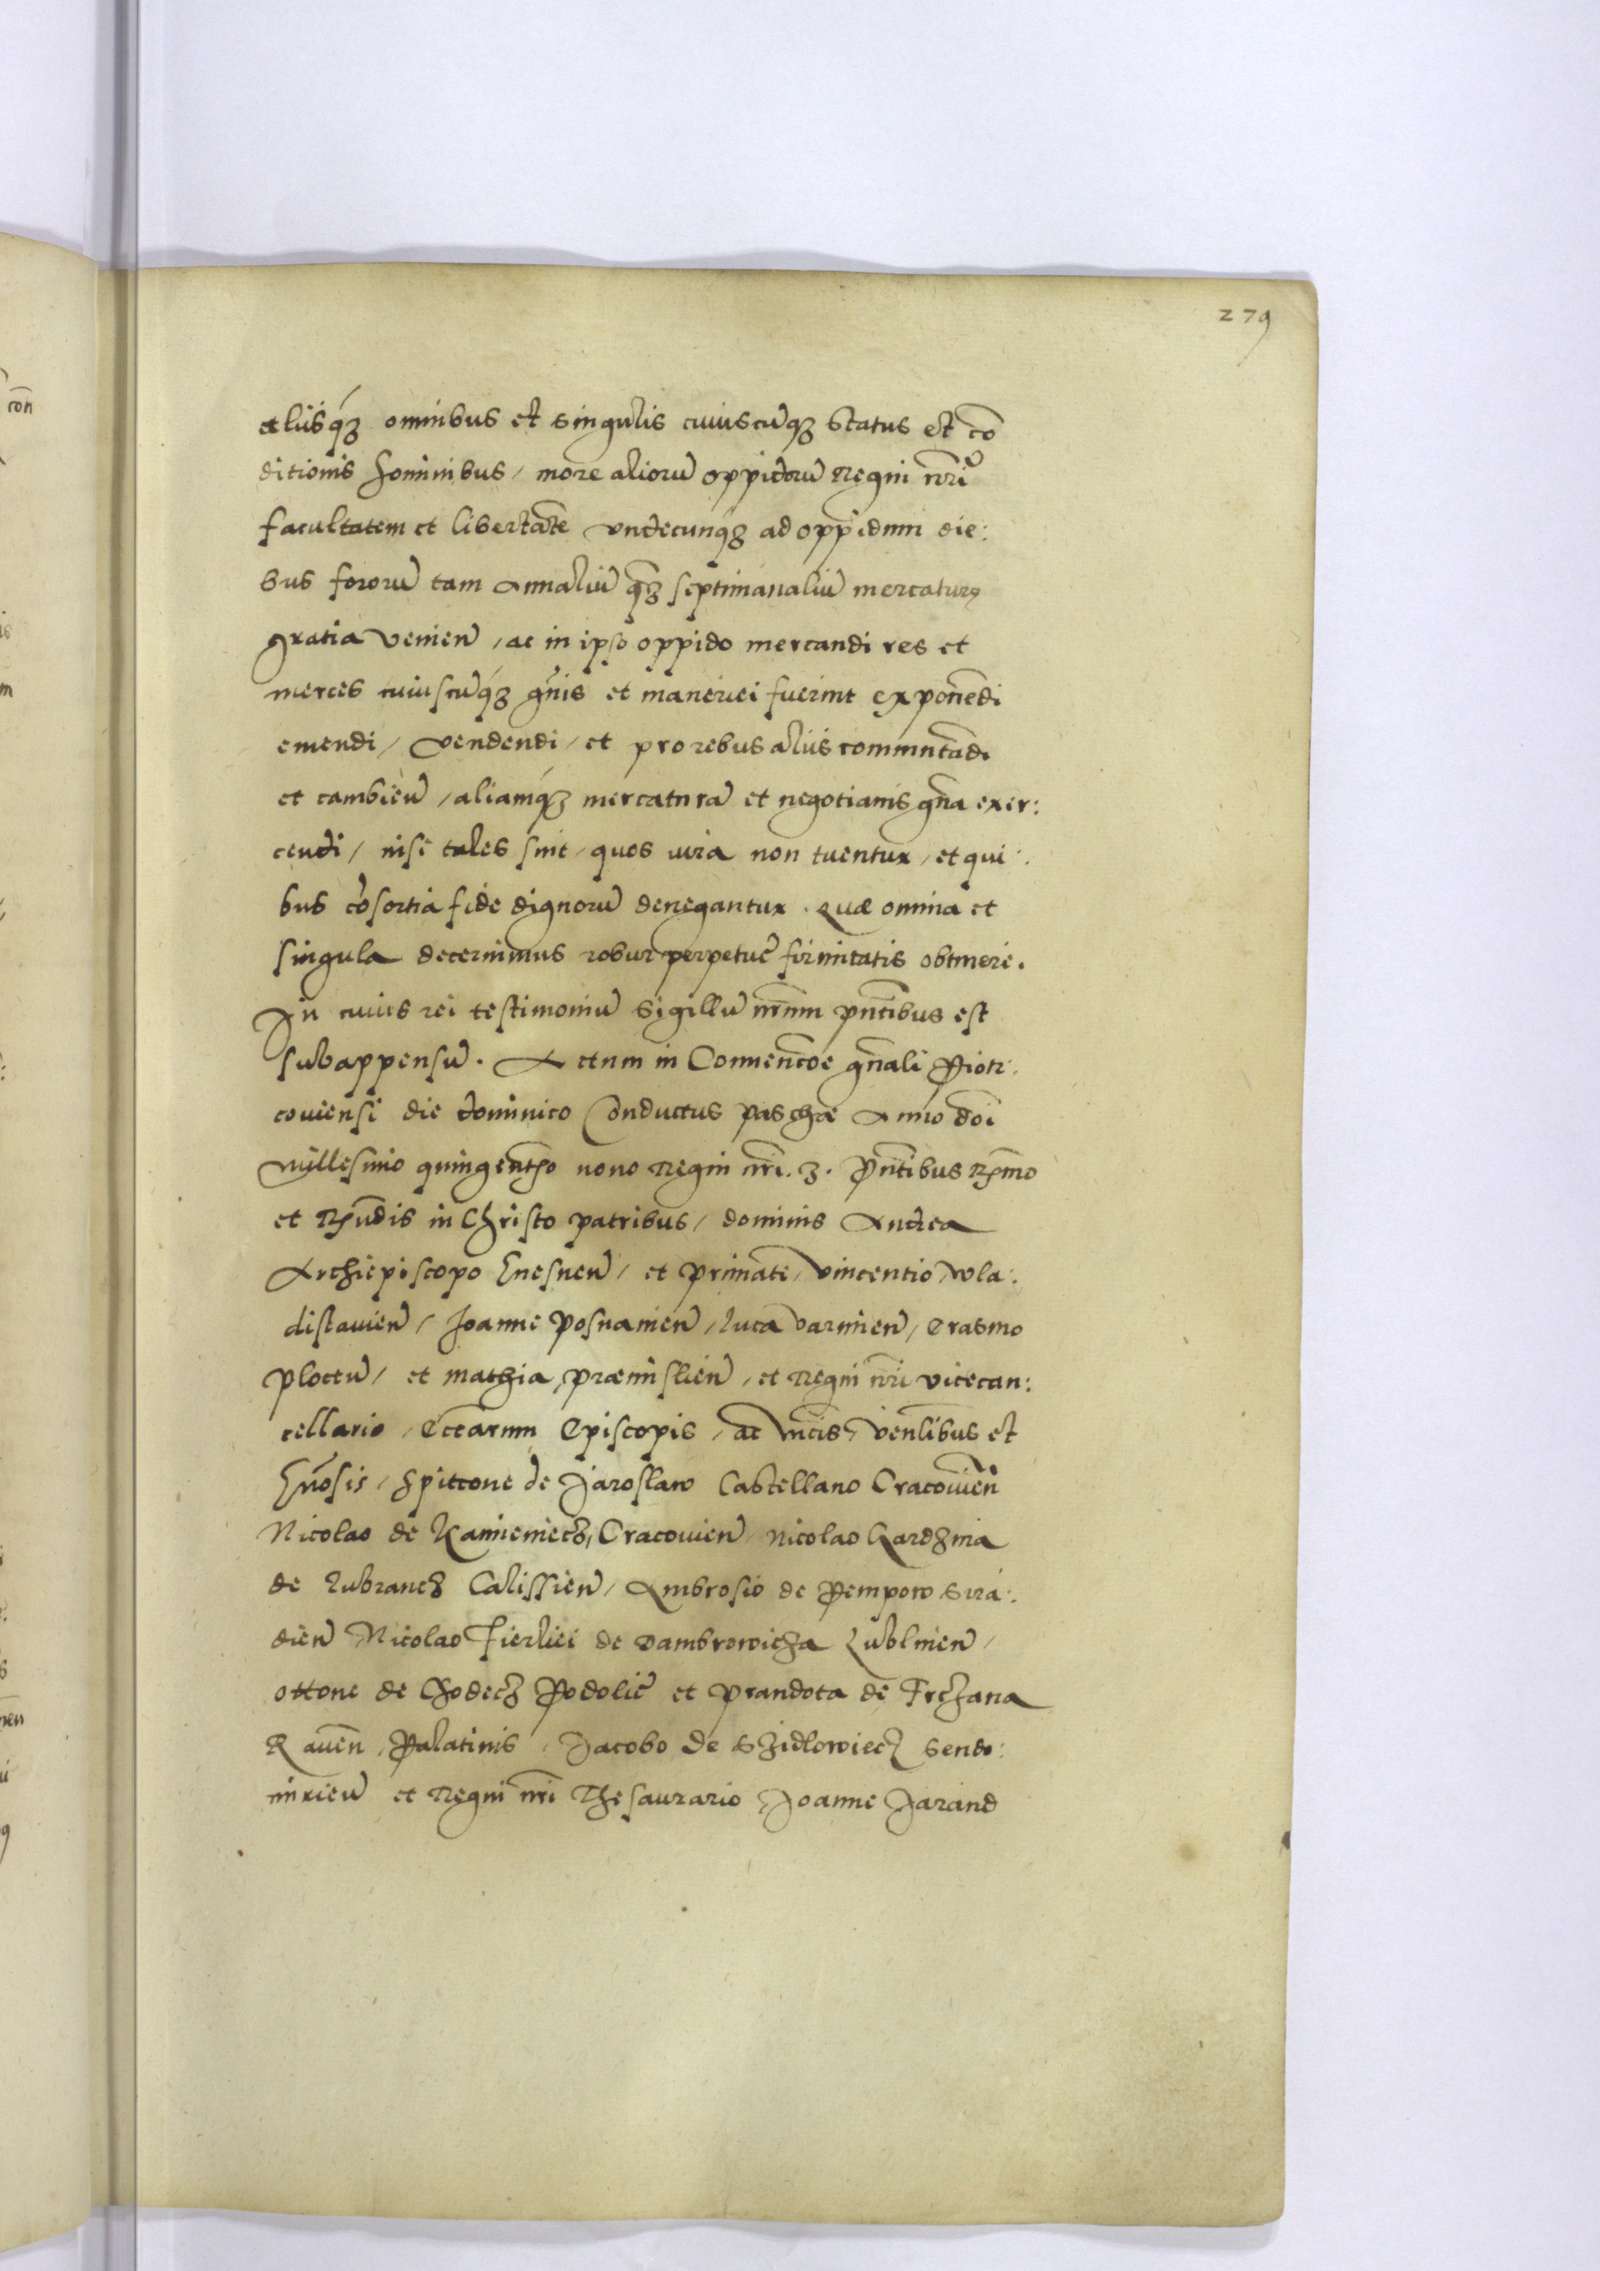 279
aliisq́ꝫ omnibus et singulis cuiuscūqꝫ status et cō
ditionis hominibus / more aliorū oppidorū Regni nr̄i
facultatem et libertatē vndecunq́ꝫ ad oppidum die:
bus fororū tam Annaliū q̄ꝫ septimanaliū mercaturę
gratia venien̄ / ac in ipso oppido mercandi res et
merces cuiuscūq́ꝫ gn̄is et maneriei fuerint exponēdi
emendi / vendendi / et pro rebus aliis commutādi
et cambien̄ / aliamq́ꝫ mercaturā et negotianis gn̄a exer:
cendi / nisi tales sint / quos iura non tuentur / et qui:
bus cōsortia fide dignorū denegantur. Quæ omnia et
singula decernimus robur perpetuę firmitatis obtinere.
In cuius rei testimoniū sigillū nr̄um pn̄tibus est
subappensū. Actum in Conuencōe gn̄ali Piotr:
couiensi die dominico Conductus paschæ Anno doī
millesimo quingentē̄o nono Regni nr̄i. 3. Pn̄tibus Rṃo
et Rn̄dis in Christo patribus / dominis Andrea
Archiepiscopo Gnesnen̄ / et primate, vincentio, wla:
dislauien̄ / Joanne Posnanien̄ / luca varmien̄ / Erasmo
plocen̄ / et mathia præmislien̄ / et Regni nr̄i vicecan:
cellario / Ecc̄arum Episcopis / ac M̄cis, Ven̄libus et
Gn̄osis / Spitcone de Jaroslaw Castellano Cracouien̄
Nicolao de Kamieniecz, Cracouien̄ / Nicolao Gardzina
de lubrancz Calissien̄ / Ambrosio de Pempow Sira:
dien̄ Nicolao Fierliei de Dambrowicza Lublinen̄ /
ottone de Chodecz Podolię et prandota de Trczana
Rauen̄ Palatinis / Jacobo de Szidlowiecz Sendo:
mirien̄ et Regni nr̄i Thesaurario Joanne Jarand